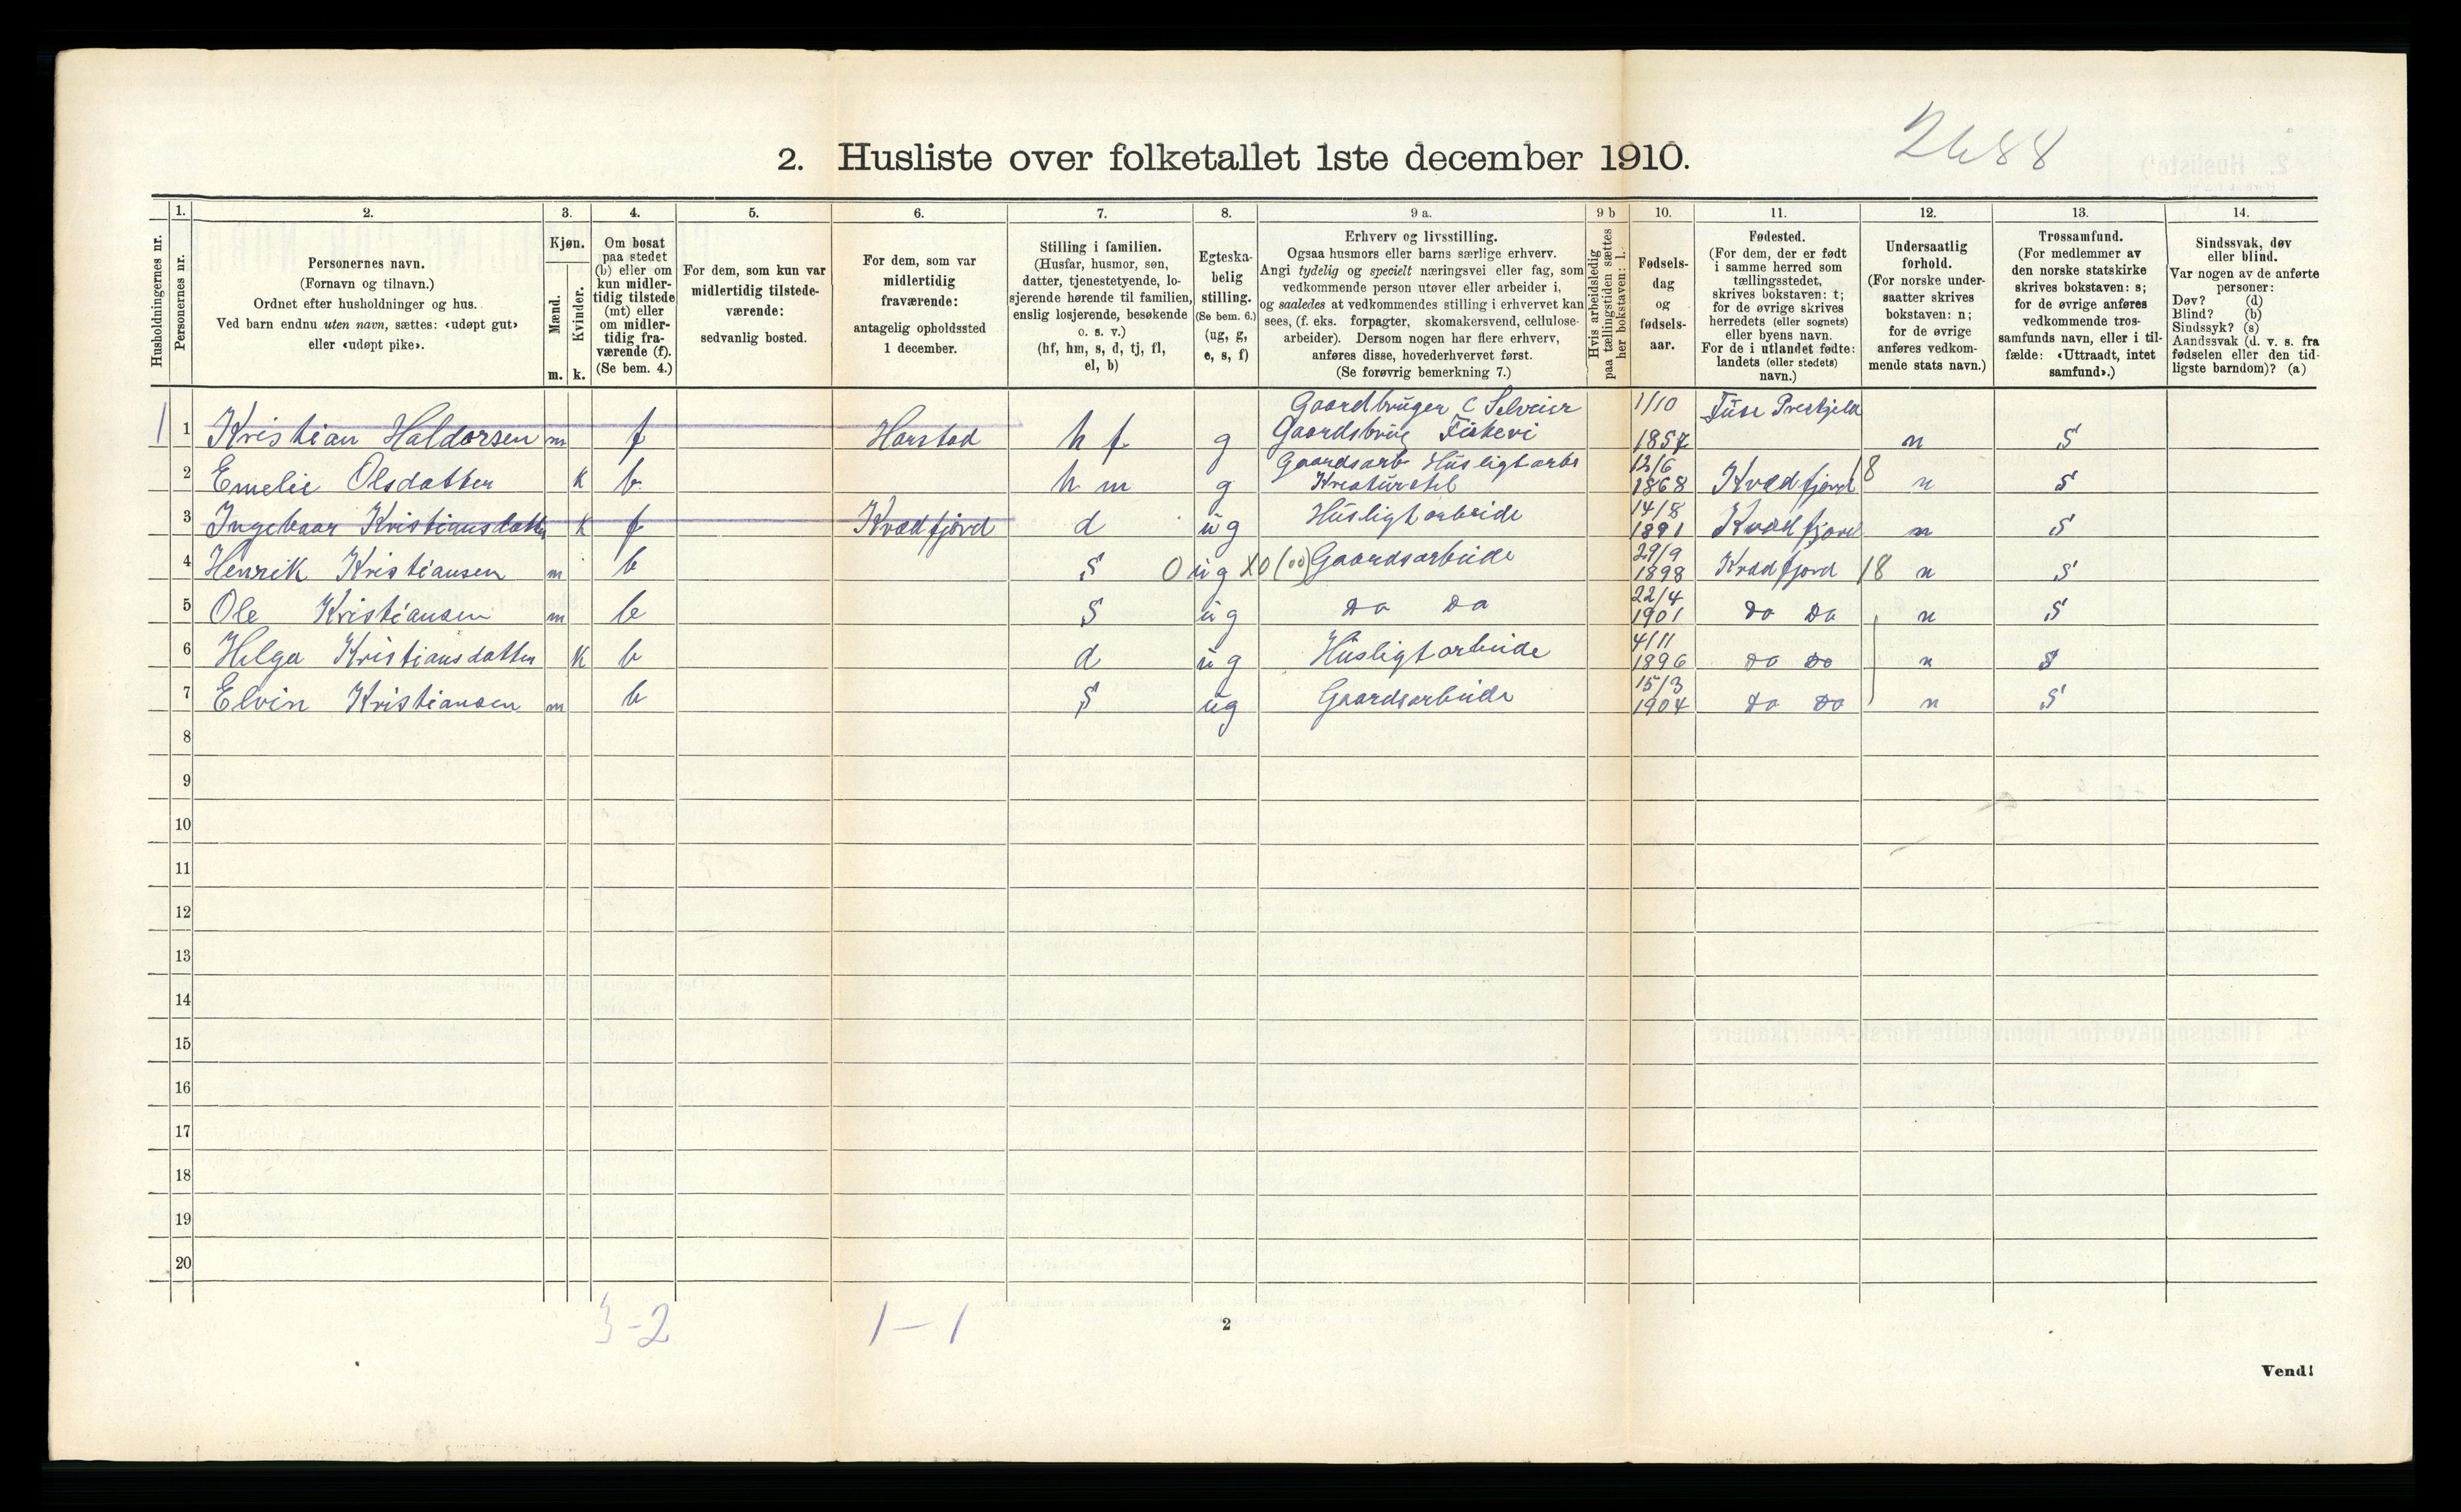 2688
2. Husliste over folketallet 1ste december 1910.
Husholdningernes nr.
1. Personernes nr.
2. Personernes navn. (Fornavn og tilnavn.) Ordnet efter husholdninger og hus. Ved barn endnu uten navn, sættes: «udøpt gut» eller «udøpt pike».
3. Kjøn. Mænd. m. Kvinder. k.
4. Om bosat paa stedet (b) eller om kun midlertidig tilstede (mt) eller om midlertidig fraværende (f). (Se bem. 4.)
5. For dem, som kun var midlertidig tilstedeværende: sedvanlig bosted.
6. For dem, som var midlertidig fraværende: antagelig opholdssted 1 december.
7. Stilling i familien. (Husfar, husmor, søn, datter, tjenestetyende, losjerende hørende til familien, enslig losjerende, besøkende o. s. v.) (hf, hm, s, d, tj, fl, el, b)
8. Egteskabelig stilling. (Se bem. 6.) (ug, g, e, s, f)
9 a. Erhverv og livsstilling. Ogsaa husmors eller barns særlige erhverv. Angi tydelig og specielt næringsvei eller fag, som vedkommende person utøver eller arbeider i, og saaledes at vedkommendes stilling i erhvervet kan sees, (f. eks. forpagter, skomakersvend, cellulosearbeider). Dersom nogen har flere erhverv, anføres disse, hovederhvervet først. (Se forøvrig bemerkning 7.)
9 b Hvis arbeidsledig paa tællingstiden sættes her bokstaven: l.
10. Fødselsdag og fødselsaar.
11. Fødested. (For dem, der er født i samme herred som tællingsstedet, skrives bokstaven: t; for de øvrige skrives herredets (eller sognets) eller byens navn. For de i utlandet fødte: landets (eller stedets) navn.)
12. Undersaatlig forhold. (For norske undersaatter skrives bokstaven: n; for de øvrige anføres vedkommende stats navn.)
13. Trossamfund. (For medlemmer av den norske statskirke skrives bokstaven: s; for de øvrige anføres vedkommende trossamfunds navn, eller i tilfælde: «Uttraadt, intet samfund».)
14. Sindssvak, døv eller blind. Var nogen av de anførte personer: Døv? (d) Blind? (b) Sindssyk? (s) Aandssvak (d. v. s. fra fødselen eller den tidligste barndom)? (a)
1 1 Kristian Haldorsen m f Harstad hf g Gaardbruger Selveier Gaardsbrug Fiskeri 1/10 1857 n S
2 Emelie Olsdatter k b hm g Gaardsarb Husligtarb Kreaturstel 12/6 1868 Kvædfjord 18 n S
3 Ingebaar Kristiansdatter k f Kvædfjord d ug Husligtarbeide 14/8 1891 Kvædfjord n S
4 Henrik Kristiansen m b S 0 ug X0 (00) Gaardsarbeide 29/9 1898 Kvædfjord 18 n S
5 Ole Kristiansen m b S ug Do Do 22/4 1901 Do Do n S
6 Helga Kristiansdatter K b d ug Husligtarbeide 4/11 1896 Do Do n S
7 Elvin Kristiansen m b S ug Gaardsarbeide 15/3 1904 Do Do n S
8
9
10
11
12
13
14
15
16
17
18
19
20
3-2 1-1
2
Vend!